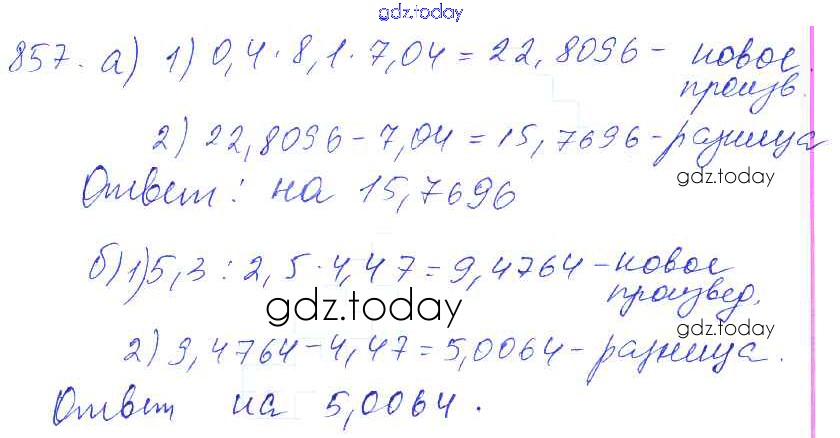 gdz.today
857. а) 1) 0,4 · 8,1 · 7,04 = 22,8096 - новое
произв.
2) 22,8096 - 7,04 = 15,7696 - разница
gdz.today
Ответ: на 15,7696
б) 1) 5,3 : 2,5 · 4,47 = 9,4764 - новое
произвед.
gdz.today
gdz.today
2) 9,4764 - 4,47 = 5,0064 - разница.
Ответ на 5,0064.